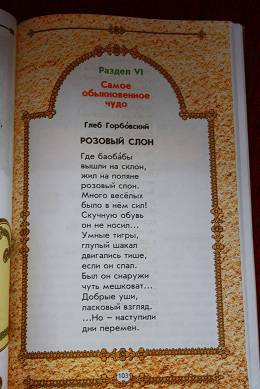 Раздел VI
Самое
обыкновенное
чудо
Глеб Горбо́вский
РОЗОВЫЙ СЛОН
Где баоба́бы
вышли на склон,
жил на поляне
розовый слон.
Много весёлых
было в нём сил!
Скучную обувь
он не носил...
Умные тигры,
глупый шакал
двигались тише,
если он спал.
Был он снаружи
чуть мешковат...
Добрые уши,
ласковый взгляд.
...Но – наступили
дни перемен.
103